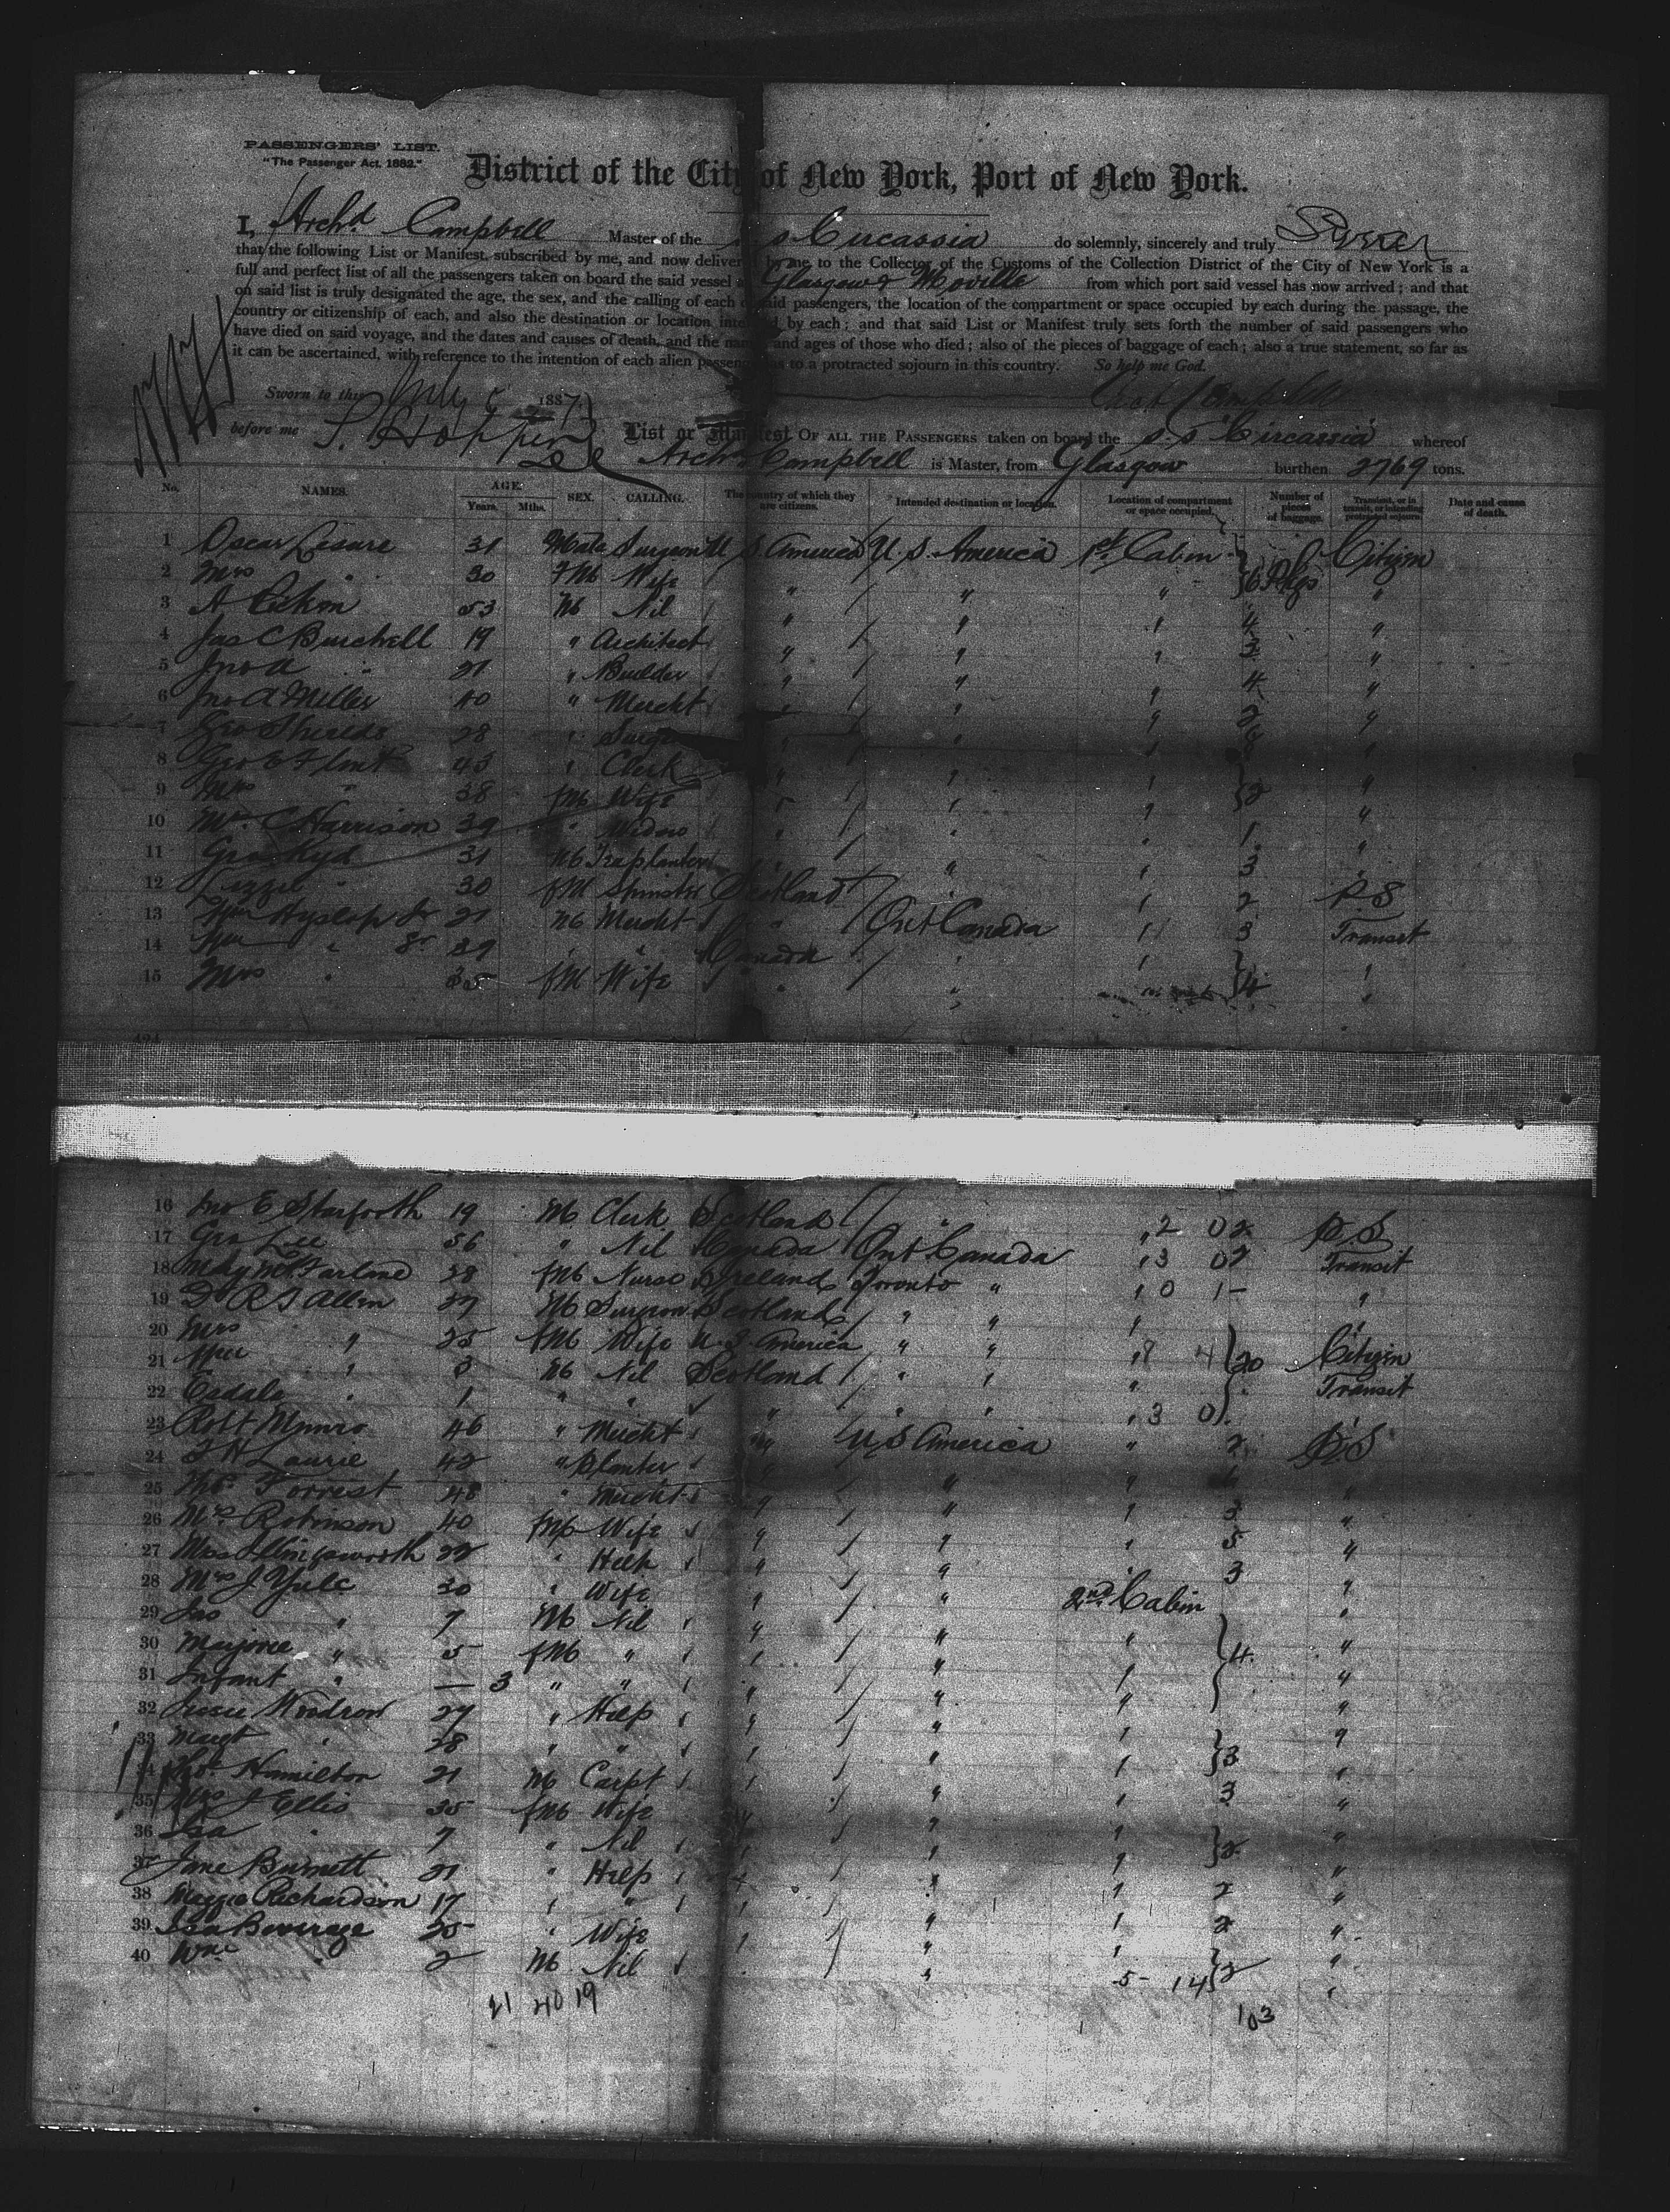 PASSENGERS' LIST.
"The Passenger Act, 1882."
District of the City of New York, Port of New York.
I, Archd Campbell Master of the s s Circassia do solemnly, sincerely and truly Swear
that the following List or Manifest, subscribed by me, and now delivered by me to the Collector of the Customs of the Collection District of the City of New York is a
full and perfect list of all the passengers taken on board the said vessel Glasgow & Moville from which port said vessel has now arrived; and that
on said list is truly designated the age, the sex, and the calling of each of said passengers, the location of the compartment or space occupied by each during the passage, the
country or citizenship of each, and also the destination or location intended by each; and that said List or Manifest truly sets forth the number of said passengers who
have died on said voyage, and the dates and causes of death, and the names and ages of those who died; also of the pieces of baggage of each; also a true statement, so far as
it can be ascertained, with reference to the intention of each alien passenger as to a protracted sojourn in this country. So help me God.
Sworn to this July 5 1887
before me S. Hopper
List or Manifest OF ALL THE PASSENGERS taken on board the s.s Circassia whereof
Archd Campbell is Master, from Glasgow burthen 2769 tons.
No. NAMES. AGE. Years. Mths. SEX. CALLING. The country of which they are citizens. Intended destination or location. Location of compartment or space occupied. Number of pieces of baggage. Transient, or in transit, or intending protracted sojourn. Date and cause of death.
1 Oscar Lesure 31 Male Surgeon U S. America U. S. America 1st Cabin Citizen
2 Mrs " 30 FM Wife " " " 6 Pkgs "
3 A 53 M Nil " " " 4 "
4 Jas C Burchell 19 " Architect " " " 3 "
5 Jno A " 21 " Builder " " " 4 "
6 Jno A Miller 40 " Mercht " " " 2 "
7 Geo Shields 28 " " " "
8 Geo E Flint 43 " Clerk " " " "
9 Mrs " 38 fM Wife " " " 2 "
10 Mrs C Harrison 39 " Widow " " " 1 "
11 Geo Kyd 31 M Teaplanter " " 3 "
12 Lizzie " 30 fM Spinster Scotland " " 2 P S
13 Wm Hyslop Jr 21 M Mercht " Ont Canada " 3 Transit
14 Wm " Sr 39 " " Canada " " "
15 Mrs " 35 fM Wife " " 4 "
16 Jno E Starforth 19 M Clerk Scotland " " 2 0 2 P S
17 Geo Lee 56 " Nil Canada Ont Canada " 3 0 2 Transit
18 May McFarlane 28 fM Nurse Ireland Toronto " " 0 1 "
19 Dr R J Allen 27 M Surgeon Scotland " " " "
20 Mrs " 25 fM Wife U. S. America " " " 20 Citizen
21 " 3 M Nil Scotland " " " Transit
22 Esdale " 1 " " " " " " 3 0 "
23 Robt Munro 46 " Mercht " U S America " 2 P S
24 J H Laurie 42 " Planter " " " "
25 Thos Forrest 48 " Mercht " " " 3 "
26 Mrs Robinson 40 fM Wife " " " 5 "
27 Illingsworth 22 " Help " " " 3 "
28 Mrs J Yule 30 " Wife " " 2nd Cabin "
29 Jas " 7 M Nil " " " "
30 Marjorie " 5 fM " " " " 4 "
31 Infant " — 3 " " " " " "
32 Jessie Woodrow 27 " Help " " " "
33 Margt " 28 " " " " " 3 "
34 Hamilton 21 M Carpt " " " 3 "
35 Mrs J Ellis 35 fM Wife " " " "
36 Isa " 7 " Nil " " " 2 "
37 Jane Burnett 21 " Help " " " 2 "
38 Maggie Richardson 17 " " " " " 2 "
39 Isa Beverage 25 " Wife " " " "
40 Wm " 2 M Nil " " 5 - 14 2 "
21 40 19 103